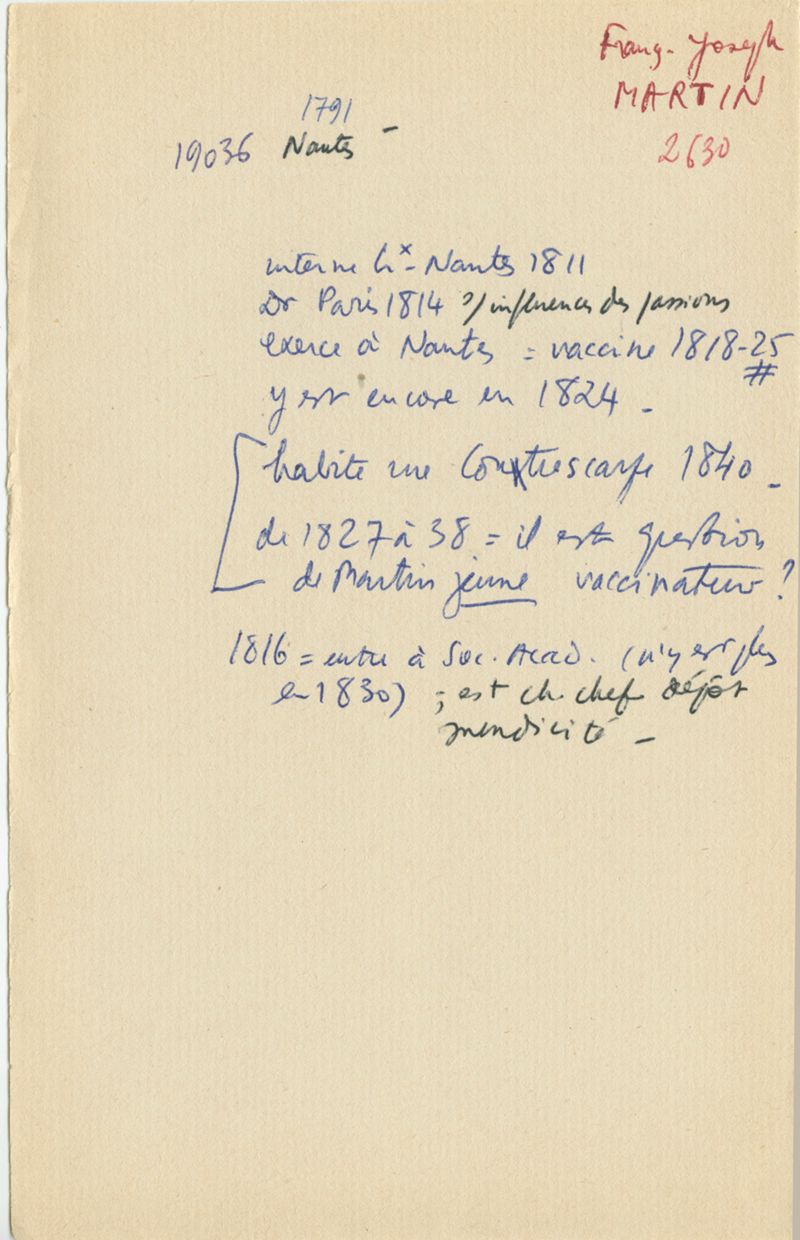 Franç. Joseph
MARTIN
2630
1791
19036 Nantes –
interne hx - Nantes 1811
Dr Paris 1814 s/influences des passions
exerce à Nantes = vaccine 1818-25
#
y est encore en 1824 -
habite rue Contrescarpe 1840 -
de 1827 à 38 = il est question
de Martin jeune vaccinateur ?
1816 = entre à Soc. Acad. (n'y est plus
en 1830) ; est ch. chef dépôt
mendicité -